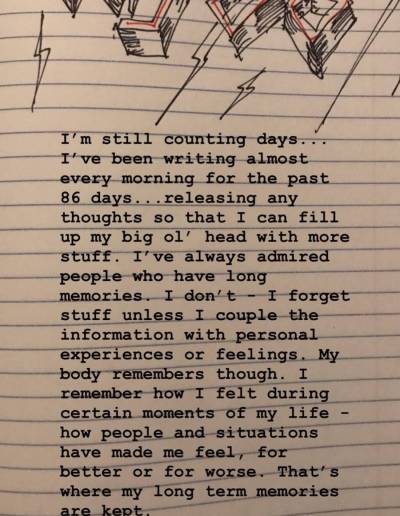 I'm still counting days...
I've been writing almost
every morning for the past
86 days...releasing any
thoughts so that I can fill
up my big ol' head with more
stuff. I've always admired
people who have long
memories. I don't - I forget
stuff unless I couple the
information with personal
experiences or feelings. My
body remembers though. I
remember how I felt during
certain moments of my life -
how people and situations
have made me feel, for
better or for worse. That's
where my long term memories
are kept.